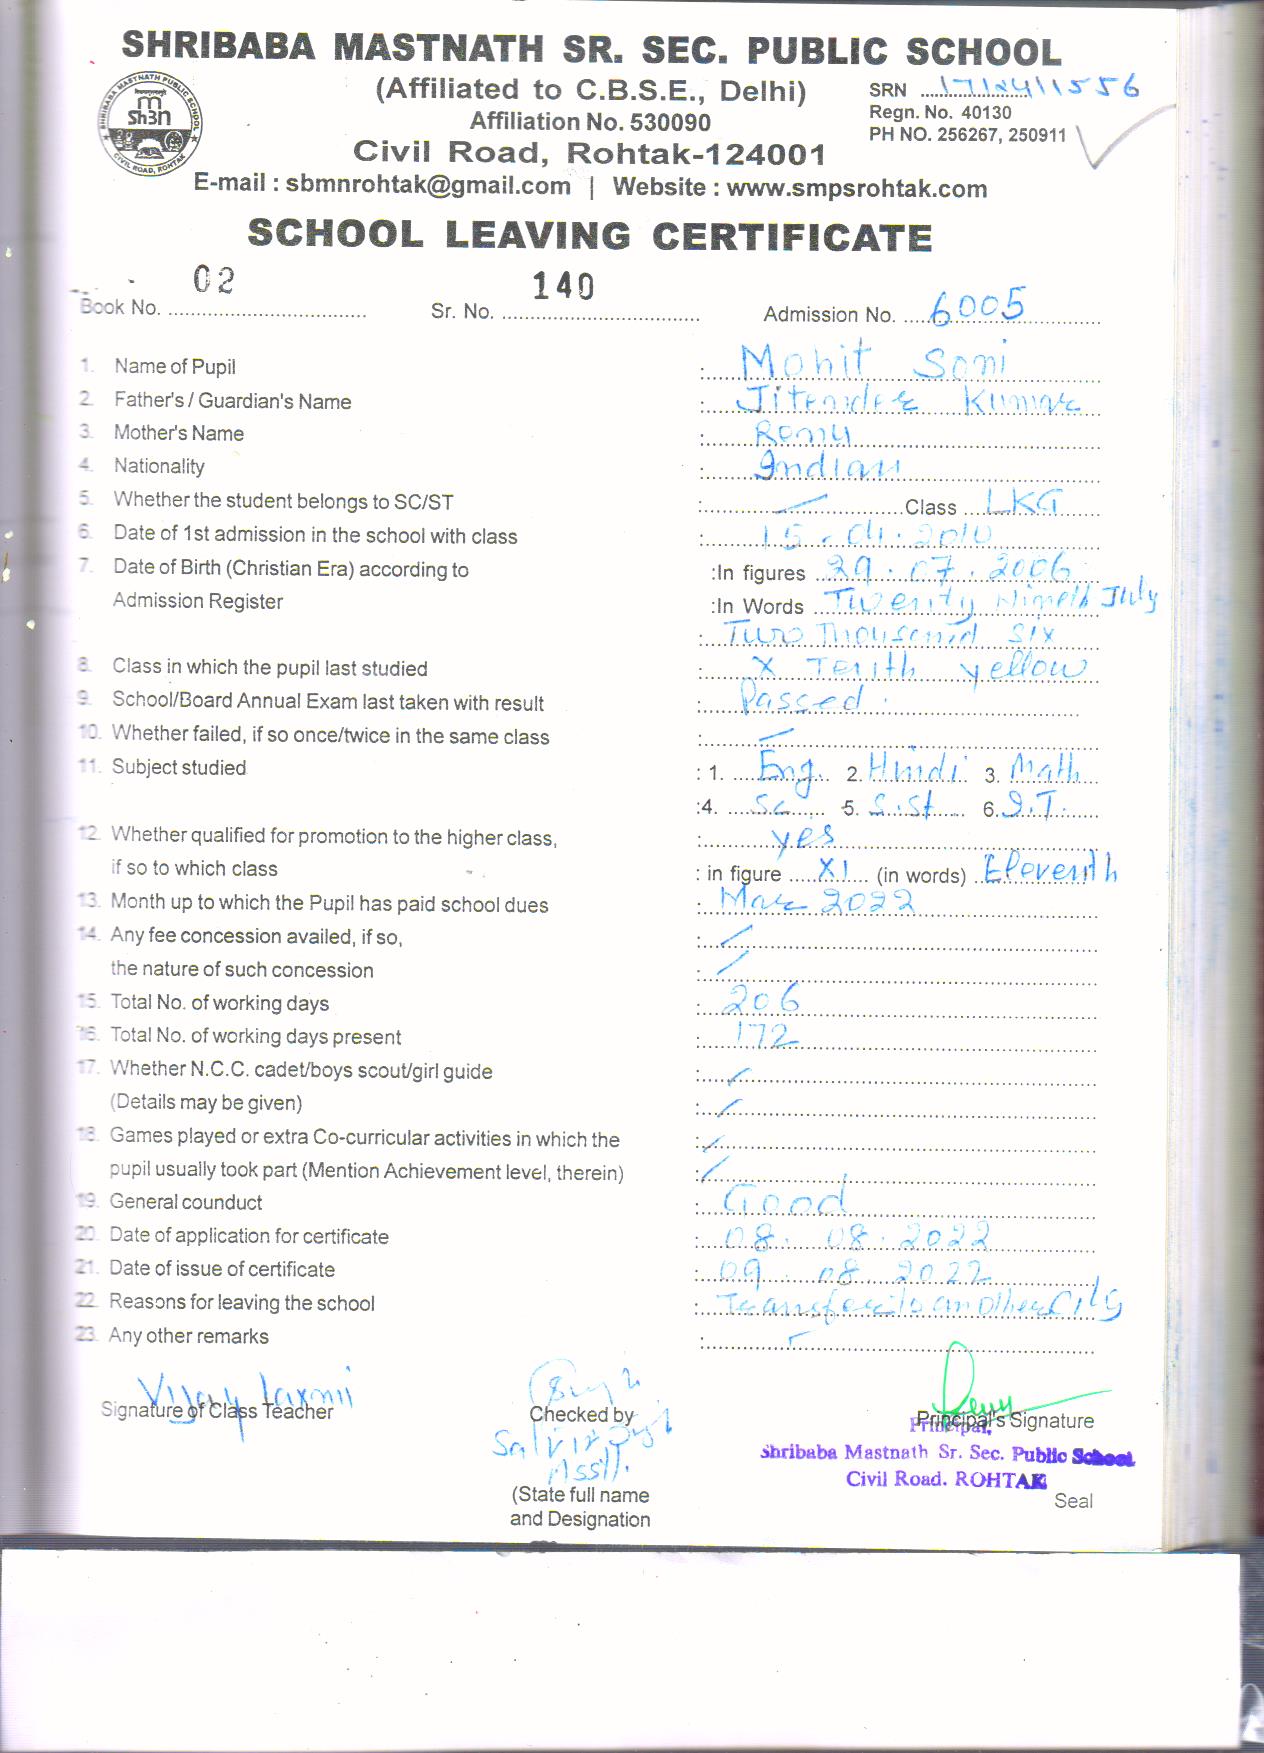 SHRIBABA MASTNATH SR. SEC. PUBLIC SCHOOL
(Affiliated to C.B.S.E., Delhi)
SRN 1712411556
Affiliation No. 530090
Regn. No. 40130
Civil Road, Rohtak-124001
PH NO. 256267, 250911
E-mail : sbmnrohtak@gmail.com | Website : www.smpsrohtak.com
SCHOOL LEAVING CERTIFICATE
Book No. 02 Sr. No. 140 Admission No. 6005
1. Name of Pupil : Mohit Soni
2. Father's / Guardian's Name : Jitender Kumar
3. Mother's Name : Romy
4. Nationality : Indian
5. Whether the student belongs to SC/ST : — Class LKG
6. Date of 1st admission in the school with class : 15.04.2010
7. Date of Birth (Christian Era) according to :In figures 29.07.2006
Admission Register :In Words Twenty Nineth July
: Two Thousend Six
8. Class in which the pupil last studied : X Tenth yellow
9. School/Board Annual Exam last taken with result : Passed.
10. Whether failed, if so once/twice in the same class : —
11. Subject studied : 1. Eng. 2. Hindi 3. Math
:4. Sc 5. S.St 6. I.T.
12. Whether qualified for promotion to the higher class, : yes
if so to which class : in figure XI (in words) Eleventh
13. Month up to which the Pupil has paid school dues : Mar 2022
14. Any fee concession availed, if so, : /
the nature of such concession : /
15. Total No. of working days : 206
16. Total No. of working days present : 172
17. Whether N.C.C. cadet/boys scout/girl guide : /
(Details may be given) : /
18. Games played or extra Co-curricular activities in which the : /
pupil usually took part (Mention Achievement level, therein) : /
19. General counduct : Good
20. Date of application for certificate : 08.08.2022
21. Date of issue of certificate : 09.08.2022
22. Reasons for leaving the school : Transfer to another City
23. Any other remarks : —
Vijay Laxmi
Signature of Class Teacher Checked by Principal's Signature
Principal,
Shribaba Mastnath Sr. Sec. Public School
Asstt.
Civil Road. ROHTAK
(State full name Seal
and Designation